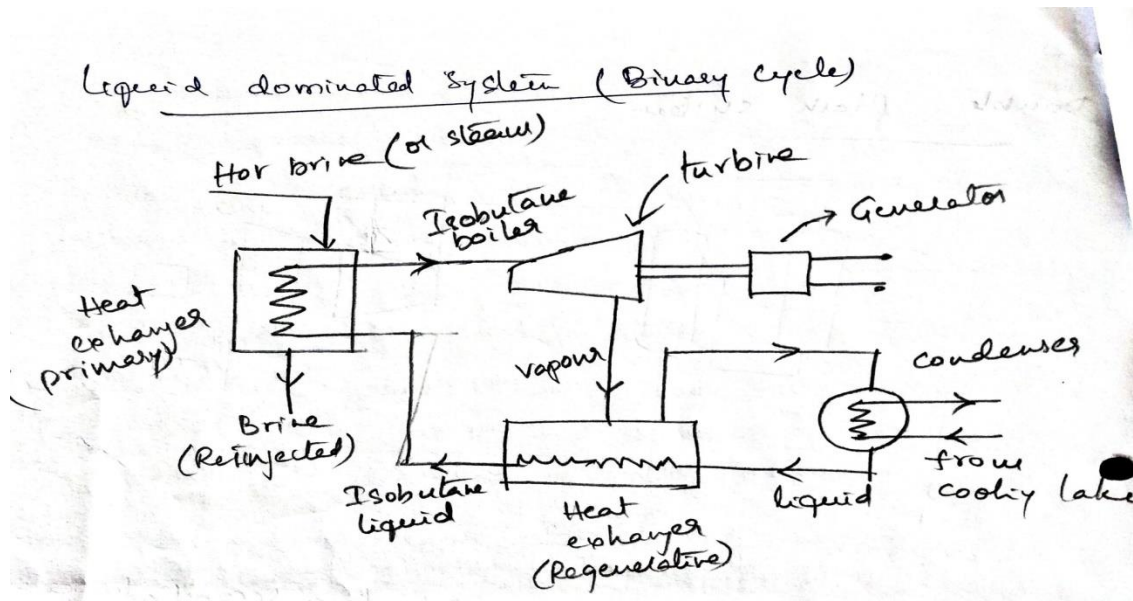 Liquid dominated System (Binary Cycle)
Hot brine (or steam)
turbine
Isobutane
boiler
Generator
Heat
exhanger
(primary)
vapour
condenser
Brine
(Reinjected)
Isobutane
liquid
Heat
exhanger
(Regenerative)
liquid
from
cooliy lake